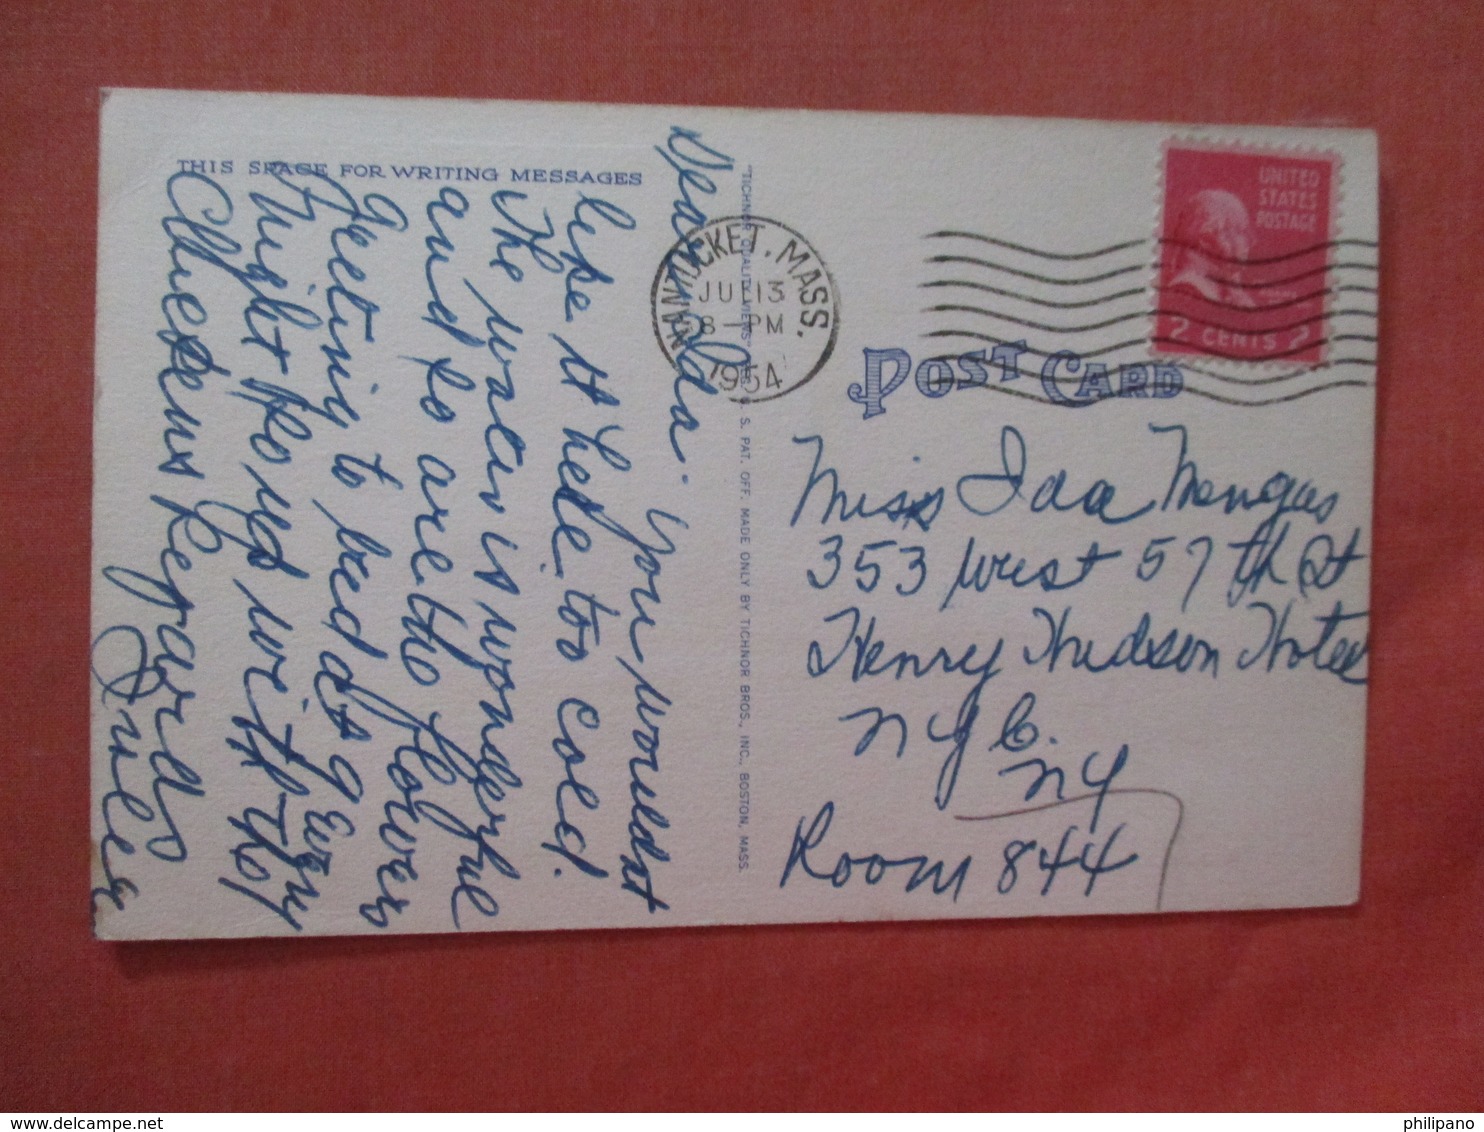 THIS SPACE FOR WRITING MESSAGES
Dear Ida: You wouldnt
like it here. too cold.
The water is wonderful
and so are the flowers
getting to bed at 9 every
night Do yes with the
Chickens Regards
Jules
"TICHNOR QUALITY VIEWS" REG. U. S. PAT. OFF. MADE ONLY BY TICHNOR BROS., INC., BOSTON, MASS.
NANTUCKET, MASS.
JUL 13
8 - PM
1954
UNITED
STATES
POSTAGE
2 CENTS 2
POST CARD
Miss Ida Mengas
353 West 57 th St
Henry Hudson Hotel
N Y C.
N Y
Room 844
philipano